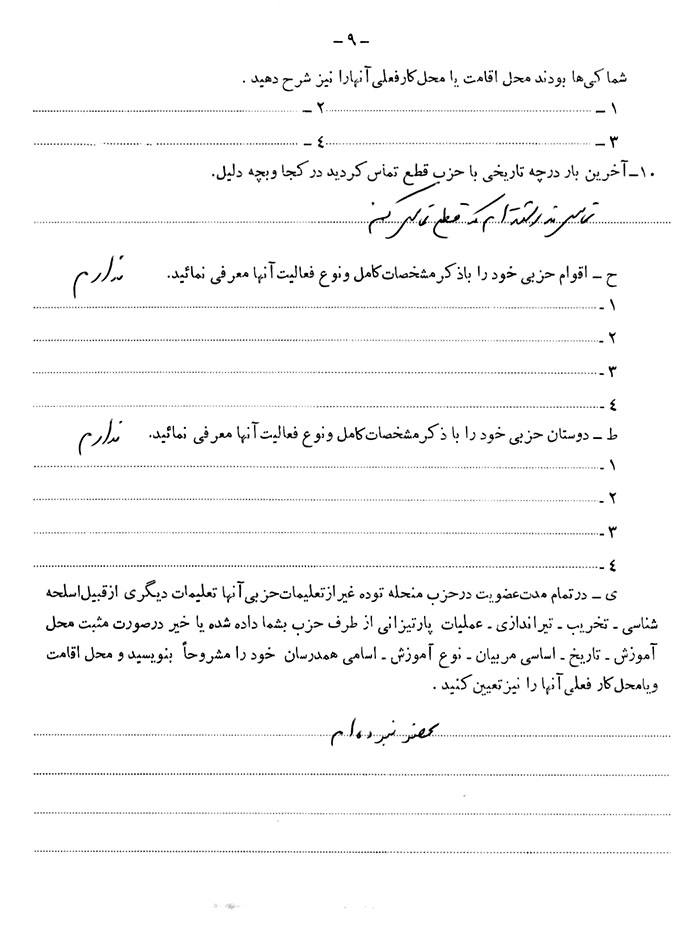 - ۹ -
شما کی‌ها بودند محل اقامت یا محل کار فعلی آنها را نیز شرح دهید .
۱ - ۲ -
۳ - ٤ -
۱۰- آخرین بار در چه تاریخی با حزب قطع تماس کردید در کجا و بچه دلیل.
تماسی نداشته‌ام که قطع تماس کنم
ح - اقوام حزبی خود را با ذکر مشخصات کامل و نوع فعالیت آنها معرفی نمائید. ندارم
۱ -
۲ -
۳ -
٤ -
ط - دوستان حزبی خود را با ذکر مشخصات کامل و نوع فعالیت آنها معرفی نمائید. ندارم
۱ -
۲ -
۳ -
٤ -
ی - در تمام مدت عضویت در حزب منحله توده غیر از تعلیمات حزبی آنها تعلیمات دیگری از قبیل اسلحه
شناسی - تخریب - تیراندازی - عملیات پارتیزانی از طرف حزب بشما داده شده یا خیر در صورت مثبت محل
آموزش - تاریخ - اساسی مربیان - نوع آموزش - اسامی همدرسان خود را مشروحاً بنویسید و محل اقامت
و یا محل کار فعلی آنها را نیز تعیین کنید .
عضو نبوده‌ام